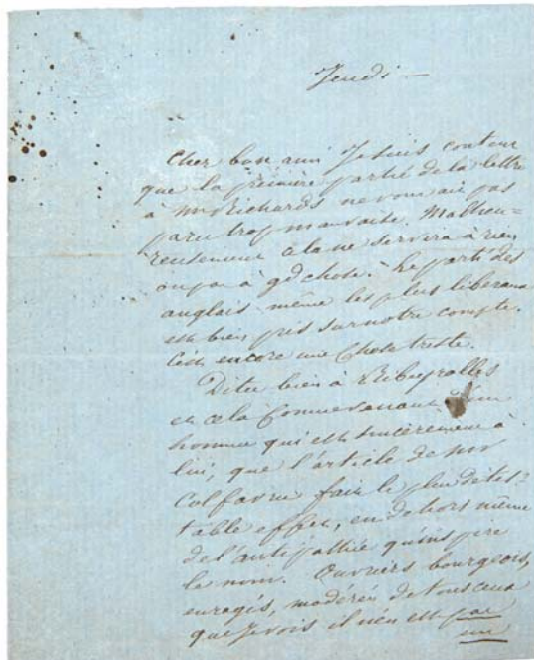 Jeudi —
Cher bon ami Je suis content
que la première partie de la lettre
à Mr Richards ne vous ait pas
paru trop mauvaise. Malheu=
reusement cela ne servira à rien
ou pas à gd chose. Le parti des
anglais même les plus libéraux
est bien pris sur notre compte.
C'est encore une chose triste.
Dites bien à Ribeyrolles
et cela comme venant d'un
homme qui est sincèrement à
lui, que l'article de
Colfavru fait le plus détes=
table effet, en dehors même
de l'antipathie qu'inspire
le nom. Ouvriers bourgeois,
enragés, modérés de tous ceux
que je vois il n'en est pas
un